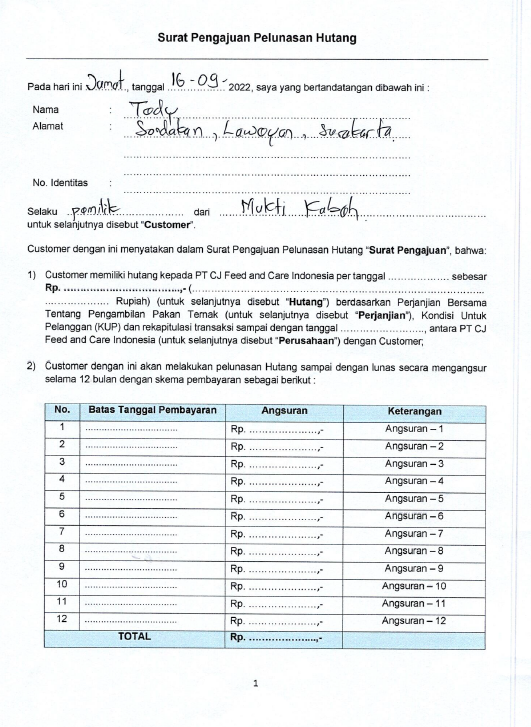 Surat Pengajuan Pelunasan Hutang
Pada hari ini Jumat, tanggal 16-09- 2022, saya yang bertandatangan dibawah ini :
Nama : Tody
Alamat : Sondakan, Laweyan, Surakarta
No. Identitas :
Selaku pemilik dari Mukti
untuk selanjutnya disebut "Customer".
Customer dengan ini menyatakan dalam Surat Pengajuan Pelunasan Hutang "Surat Pengajuan", bahwa:
1) Customer memiliki hutang kepada PT CJ Feed and Care Indonesia per tanggal .................. sebesar
Rp. ................................,- (................................................................................
................... Rupiah) (untuk selanjutnya disebut "Hutang") berdasarkan Perjanjian Bersama
Tentang Pengambilan Pakan Ternak (untuk selanjutnya disebut "Perjanjian"), Kondisi Untuk
Pelanggan (KUP) dan rekapitulasi transaksi sampai dengan tanggal ........................, antara PT CJ
Feed and Care Indonesia (untuk selanjutnya disebut "Perusahaan") dengan Customer;
2) Customer dengan ini akan melakukan pelunasan Hutang sampai dengan lunas secara mengangsur
selama 12 bulan dengan skema pembayaran sebagai berikut :
No. Batas Tanggal Pembayaran Angsuran Keterangan
1 ............................... Rp. ......................,- Angsuran – 1
2 ............................... Rp. ......................,- Angsuran – 2
3 ............................... Rp. ......................,- Angsuran – 3
4 ............................... Rp. ......................,- Angsuran – 4
5 ............................... Rp. ......................,- Angsuran – 5
6 ............................... Rp. ......................,- Angsuran – 6
7 ............................... Rp. ......................,- Angsuran – 7
8 ............................... Rp. ......................,- Angsuran – 8
9 ............................... Rp. ......................,- Angsuran – 9
10 ............................... Rp. ......................,- Angsuran – 10
11 ............................... Rp. ......................,- Angsuran – 11
12 ............................... Rp. ......................,- Angsuran – 12
TOTAL Rp. ......................,-
1